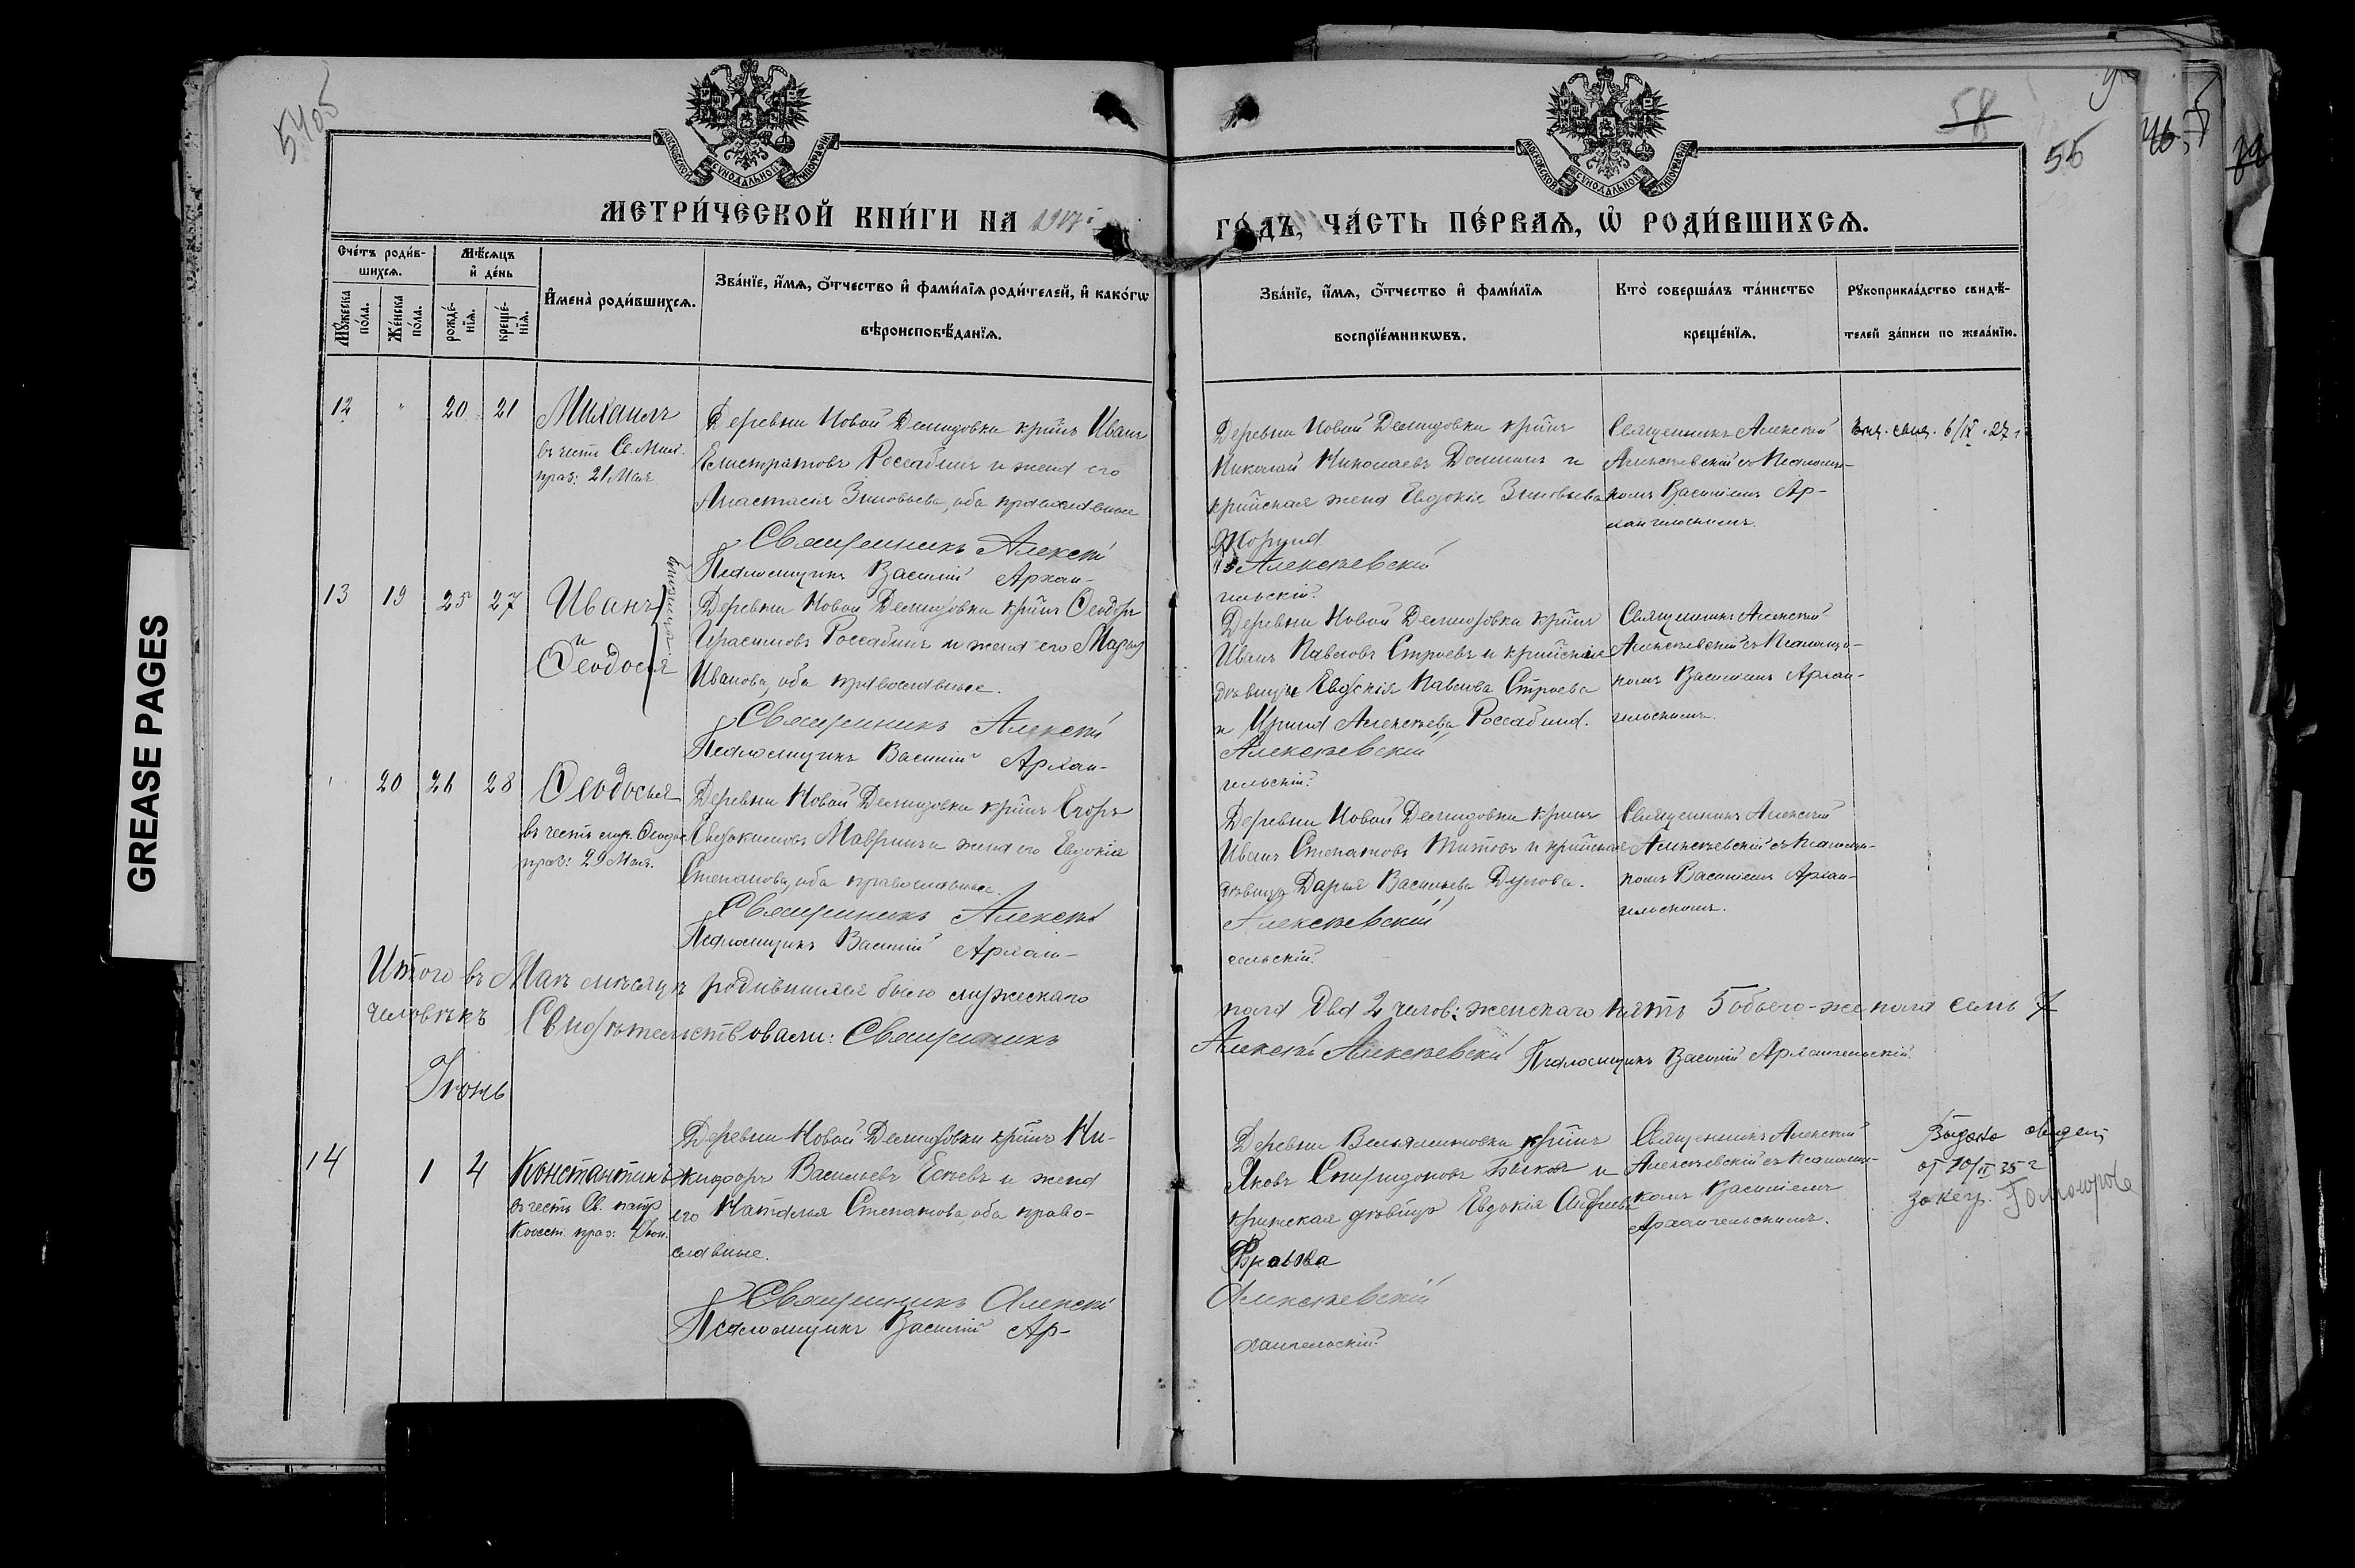 5405
58
56
МОСКОВСКОЙ СѴНОДАЛЬНОЙ ТИПОГРАФІИ
МОСКОВСКОЙ СѴНОДАЛЬНОЙ ТИПОГРАФІИ
МЕТРИ́ЧЕСКОЙ КНИ́ГИ НА 1917 г
ГО́ДЪ, ЧА́СТЬ ПЕ́РВАѦ, Ѡ҆ РОДИ́ВШИХСѦ.
Сче́тъ роди́в-
шихсѧ.
Мѣ́сѧцъ
и҆ де́нь
Мꙋ́жеска по́ла.
Же́нска по́ла.
рожде́-
нїѧ.
креще́-
нїѧ.
И҆мена̀ роди́вшихсѧ.
Зва́нїе, и҆́мѧ, ѻ҆́тчество и҆ фами́лїѧ роди́телей, и҆ како́гѡ
вѣроисповѣ́данїѧ.
Зва́нїе, и҆́мѧ, ѻ҆́тчество и҆ фами́лїѧ
воспрїе́мникѡвъ.
Кто̀ соверша́лъ та́инство
креще́нїѧ.
Рꙋкоприкла́дство свидѣ́-
телей за́писи по жела́нїю.
12 " 20 21
Михаилъ
въ честь Св. Мих.
праз: 21 Мая
Деревни Новой Демидовки кр̃инъ Иванъ
Елистратовъ Россабинъ и жена его
Анастасія Зиновьева, оба православные
Священникъ Алексѣй
Псаломщикъ Василій Архан-
Деревни Новой Демидовки кр̃инъ
Николай Николаевъ Доминъ и
кр̃инская жена Евдокія Зиновьева
Алексѣевскій
гельскій.
Священникъ Алексѣй
Алексѣевскій съ Псаломщи-
комъ Василіемъ Ар-
хангельскимъ.
6/IX 27 г
13 19 25 27
Иванъ
и
Ѳеодосія
близнецы
Деревни Новой Демидовки кр̃инъ Ѳеодоръ
Герасимовъ Россабинъ и жена его Марія
Иванова, оба православные.
Священникъ Алексѣй
Псаломщикъ Василій Архан-
Деревни Новой Демидовки кр̃инъ
Иванъ Павловъ Строевъ и кр̃инскія
дѣвицы Евдокія Павлова Строева
и Ирина Алексѣева Россабина.
Алексѣевскій
гельскій.
Священникъ Алексѣй
Алексѣевскій съ Псаломщи-
комъ Василіемъ Архан-
гельскимъ.
20 26 28
Ѳеодосія
въ честь муч. Ѳеодос
праз: 29 Мая.
Деревни Новой Демидовки кр̃инъ Егоръ
Евдокимовъ Мавринъ и жена его Евдокія
Степанова, оба православные.
Священникъ Алексѣй
Псаломщикъ Василій Архан-
Деревни Новой Демидовки кр̃инъ
Иванъ Степановъ Титовъ и кр̃инская
дѣвица Дарья Васильева Дулова.
Алексѣевскій
гельскій.
Священникъ Алексѣй
Алексѣевскій съ Псаломщи-
комъ Василіемъ Архан-
гельскимъ.
Итого въ Маѣ мѣсяцѣ родившихся было мужескаго
пола два 2 челов: женскаго пять 5 обоего-же пола семь 7
человѣкъ Свидѣтельствовали: Священникъ
Алексѣй Алексѣевскій Псаломщикъ Василій Архангельскій.
Іюнь
14 1 4
Константинъ
въ честь Св.
Конст. праз:
Деревни Новой Демидовки кр̃инъ Ни-
кифоръ Васильевъ Елѣевъ и жена
его Наталья Степанова, оба право-
славные.
Священникъ Алексѣй
Псаломщикъ Василій Ар-
Деревни Вельяминовки кр̃инъ
Яковъ Спиридоновъ Быковъ и
дѣвица Евдокія Андреева
Алексѣевскій
хангельскій.
Священникъ Алексѣй
Алексѣевскій съ Псаломщи-
комъ Василіемъ
Архангельскимъ.
Выдано свидет.
от 10/II 35 г
GREASE PAGES